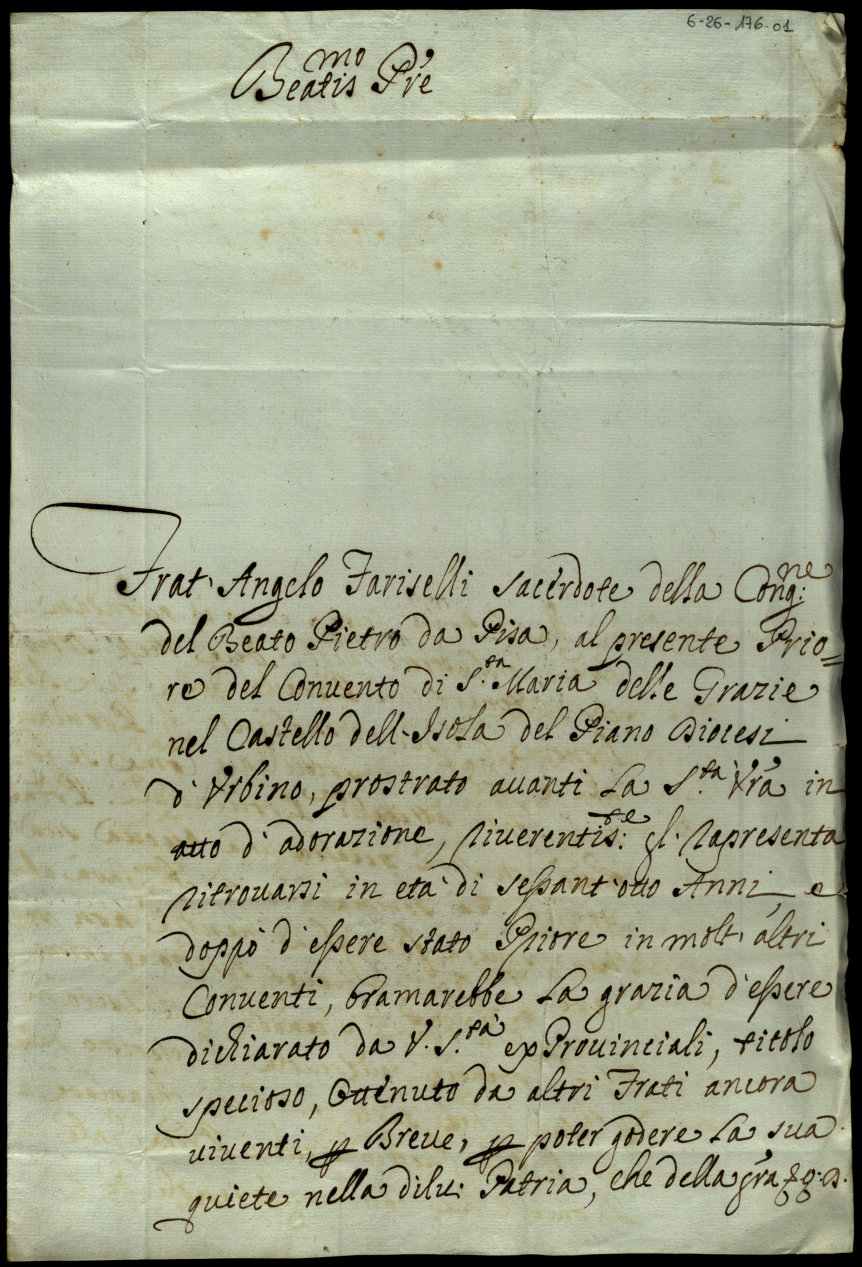 6-26-176-01
Beatis.mo Pre
Frat' Angelo Fariselli sacerdote della Cong:ne
del Beato Pietro da Pisa, al presente Prio=
re del Convento di S.ta Maria delle Grazie
nel Castello dell'Isola del Piano Diocesi
d'Urbino, prostrato avanti la S.tà Vra in
atto d'adorazione, riverentis:te gl' rapresenta
ritrovarsi in età di sessant'otto Anni, e
doppò d'essere stato Priore in molt' altri
Conventi, bramarebbe la grazia d'essere
dichiarato da V. S.tà exProvinciali, titolo
specioso, ottenuto da altri Frati ancora
viventi, p Breve, p poter godere la sua
quiete nella di lui Patria, che della gra